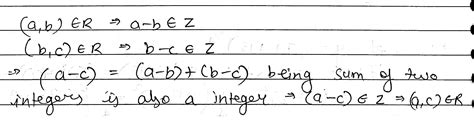 (a,b) ∈R ⇒ a-b ∈ Z
(b,c) ∈ R ⇒ b-c ∈ Z
⇒ (a-c) = (a-b)+(b-c) being sum of two
integers is also a integer ⇒ (a-c) ∈ Z ⇒ (a,c) ∈R